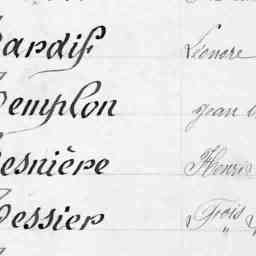 Tardif Léonore
Templon jean
Tesnière Henri
Tessier Frois